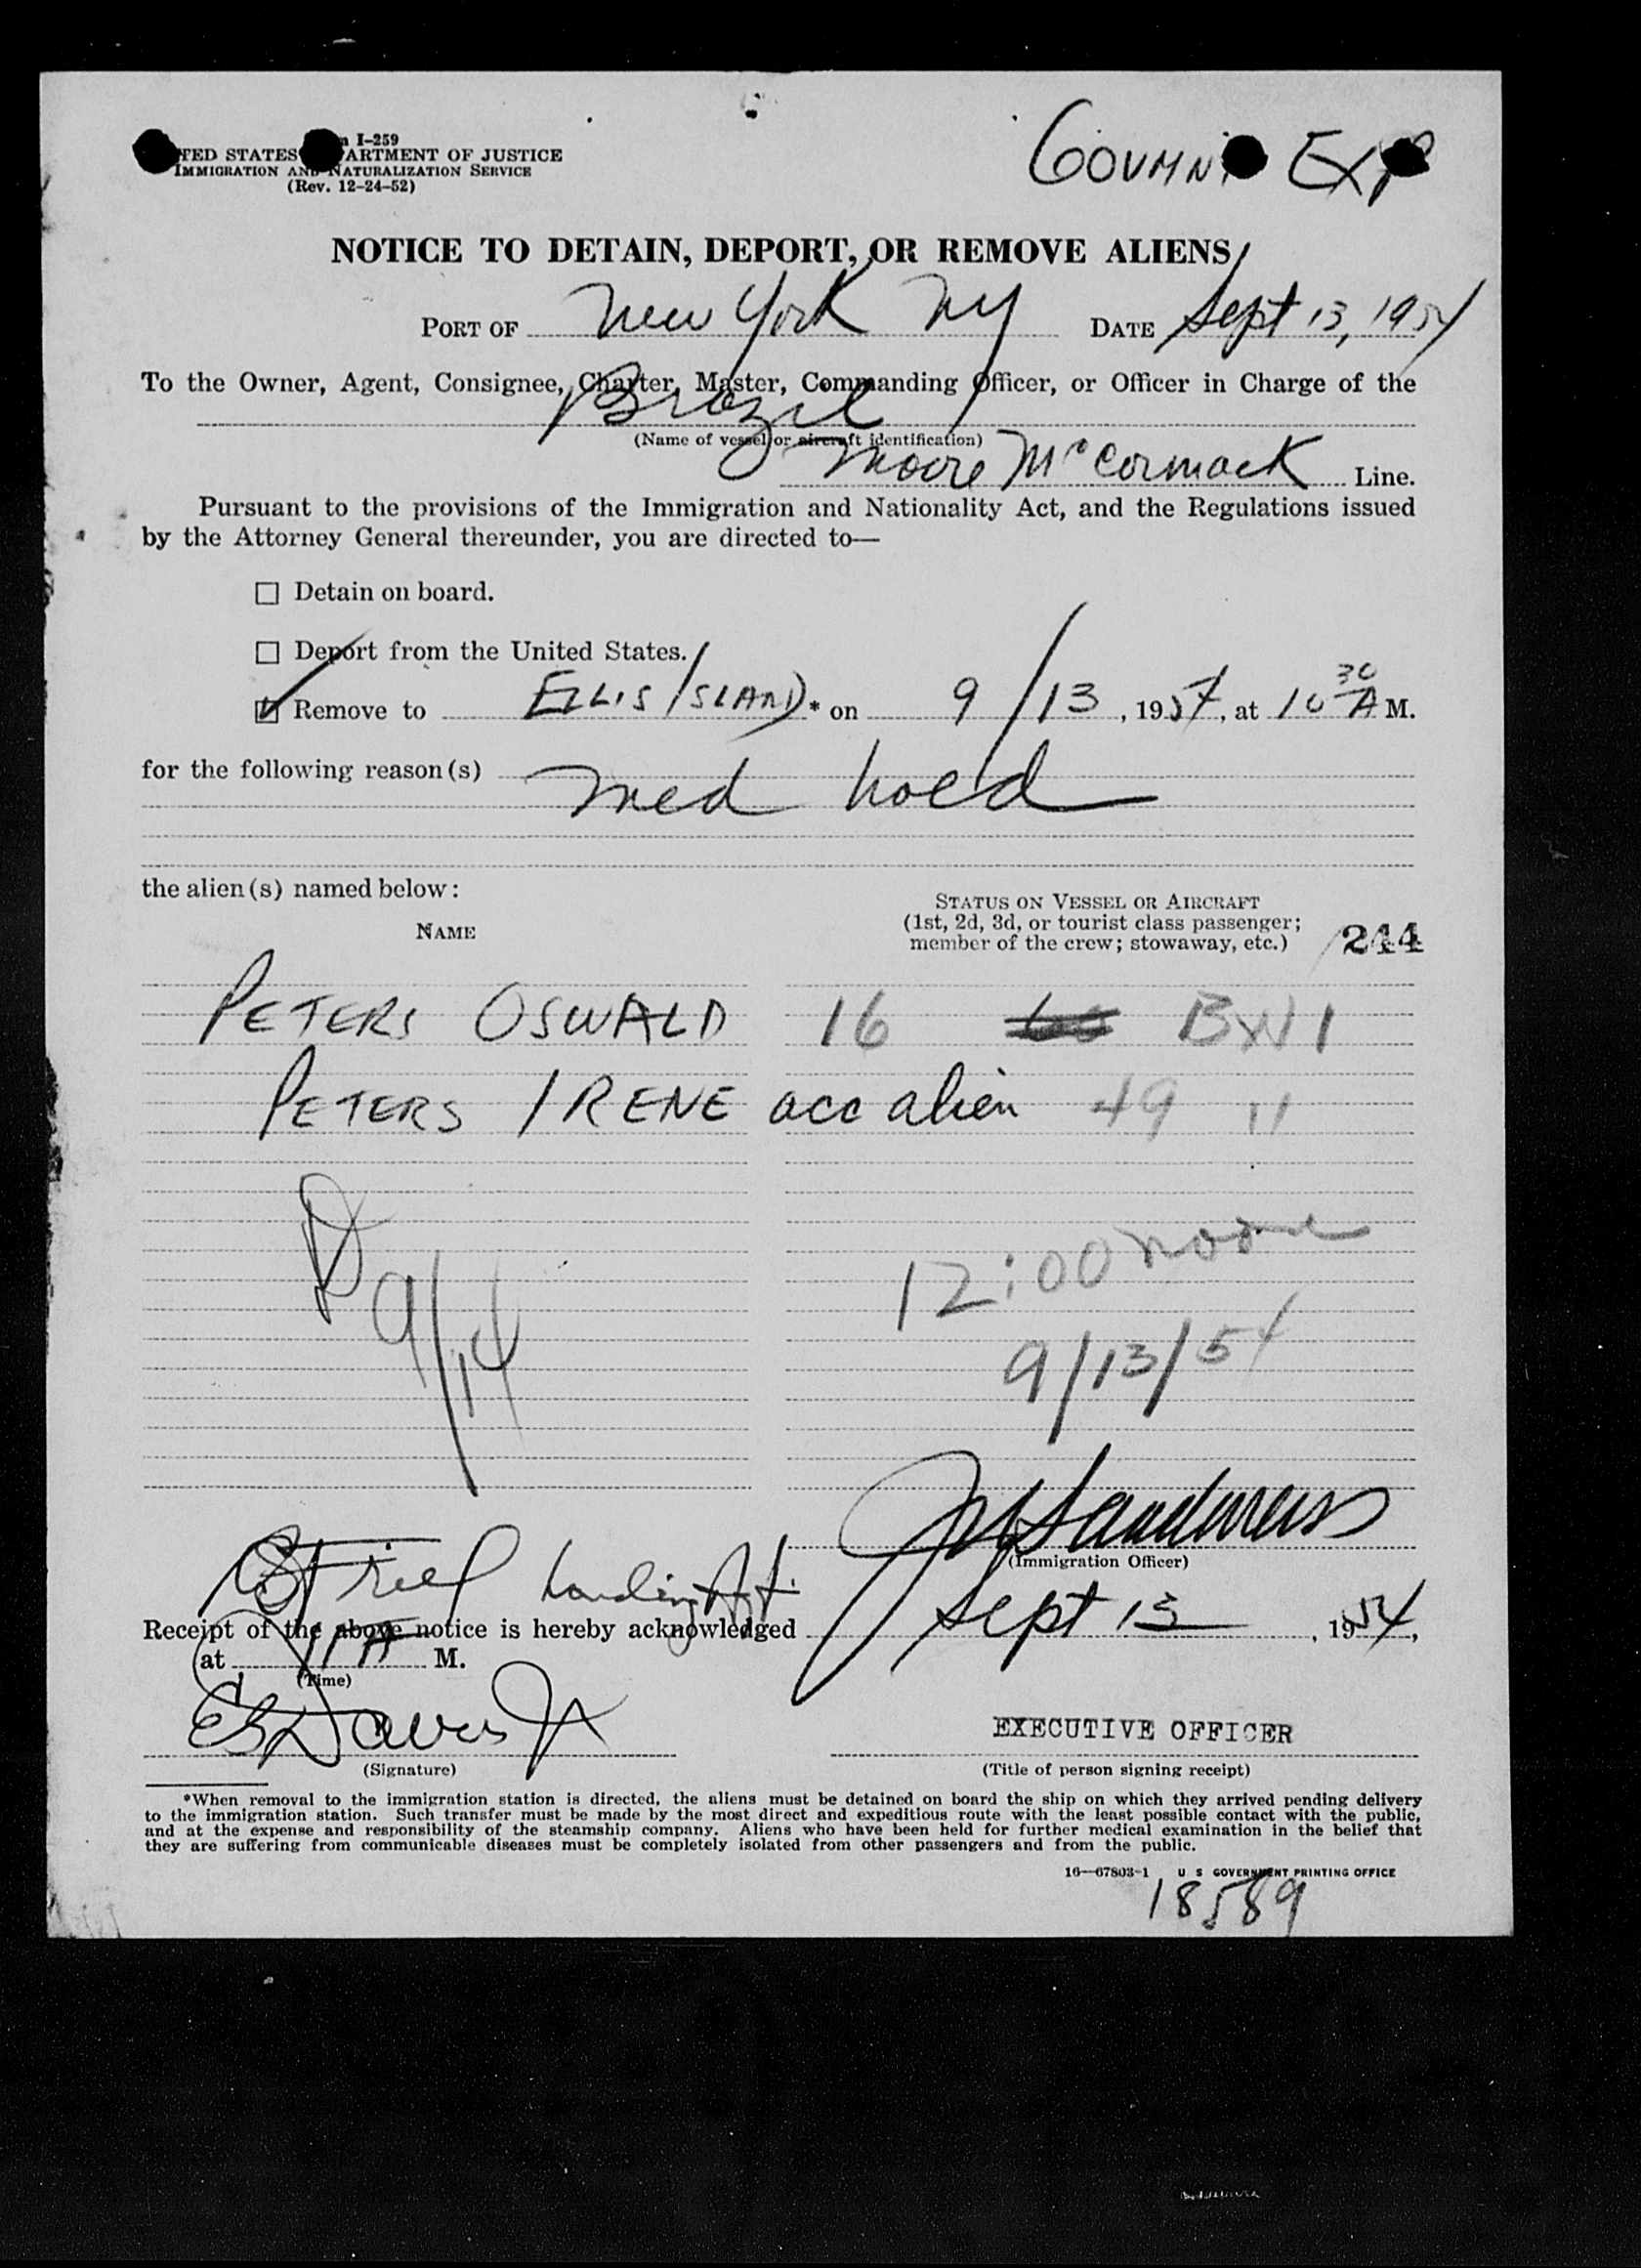 I-259
GOVMN EXP
TED STATES ARTMENT OF JUSTICE
IMMIGRATION AND NATURALIZATION SERVICE
(Rev. 12-24-52)
NOTICE TO DETAIN, DEPORT, OR REMOVE ALIENS
PORT OF New York NY DATE Sept 13, 1954
To the Owner, Agent, Consignee, Charter, Master, Commanding Officer, or Officer in Charge of the
Brazil
(Name of vessel or aircraft identification)
Moore McCormack Line.
Pursuant to the provisions of the Immigration and Nationality Act, and the Regulations issued
by the Attorney General thereunder, you are directed to—
☐ Detain on board.
☐ Deport from the United States.
☑ Remove to ELLIS ISLAND * on 9/13, 1954, at 10 30 A M.
for the following reason(s) med hold
the alien(s) named below:
STATUS ON VESSEL OR AIRCRAFT
(1st, 2d, 3d, or tourist class passenger;
member of the crew; stowaway, etc.)
NAME
244
PETERS OSWALD 16 BWI
PETERS IRENE acc alien 49 11
D 9/14
12:00 noon
9/13/54
(Immigration Officer)
Receipt of the above notice is hereby acknowledged Sept 13, 1954,
at 11 A M.
(Time)
EXECUTIVE OFFICER
(Signature) (Title of person signing receipt)
*When removal to the immigration station is directed, the aliens must be detained on board the ship on which they arrived pending delivery
to the immigration station. Such transfer must be made by the most direct and expeditious route with the least possible contact with the public,
and at the expense and responsibility of the steamship company. Aliens who have been held for further medical examination in the belief that
they are suffering from communicable diseases must be completely isolated from other passengers and from the public.
16—67803-1 U S GOVERNMENT PRINTING OFFICE
18589